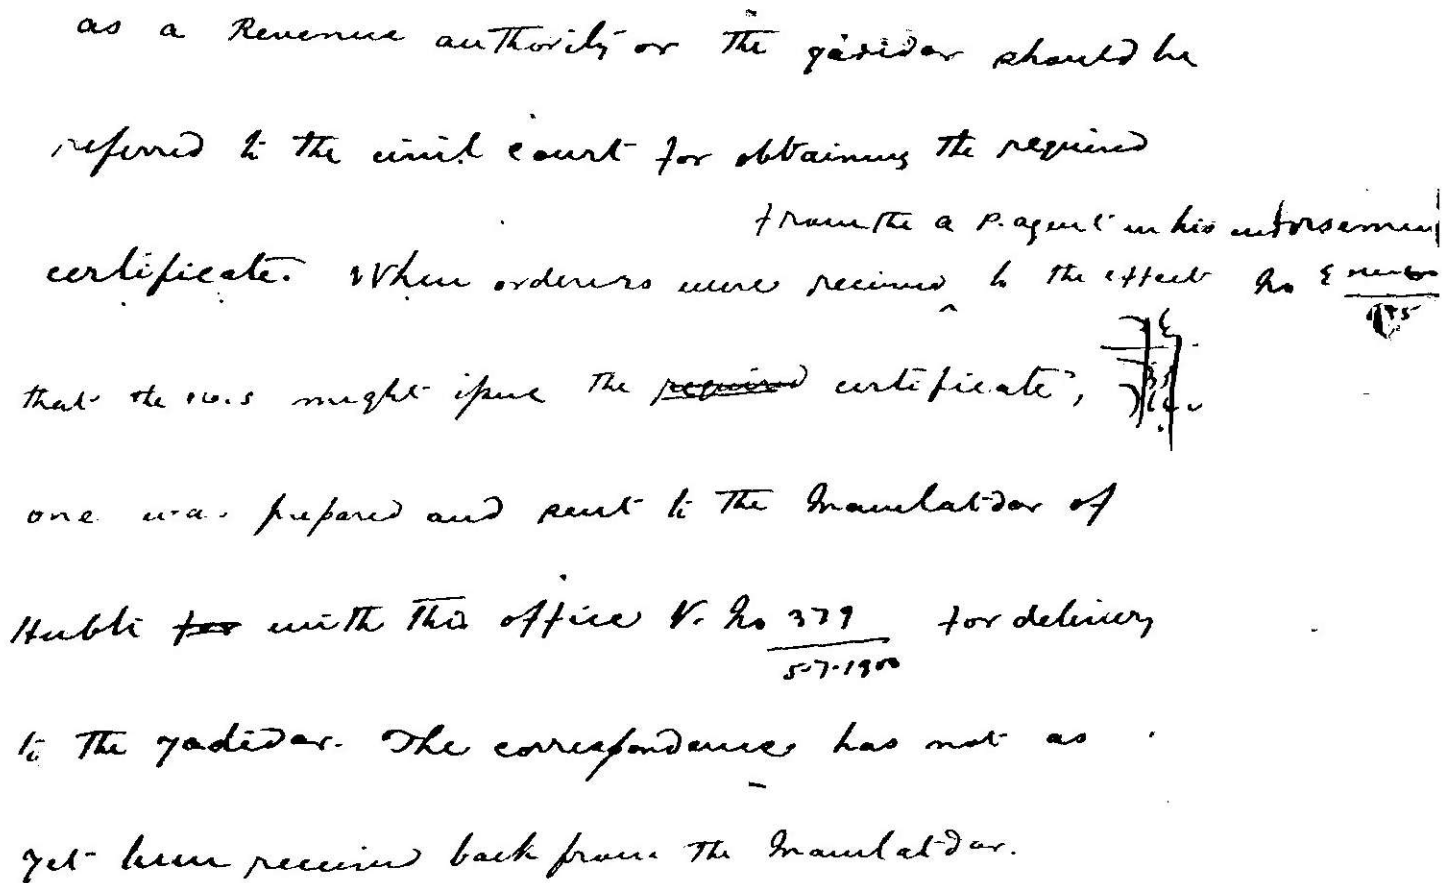 as a Revenue authority or the yadidar should be
referred to the civil court for obtaining the required
from the a P. agent in his endorsemen
certificate. When orders were received to the effect No
that the might issue the required certificate,
one was prepared and sent to the Mamlatdar of
Hubli for with this office V. No 379 for delivery
5-7-1900
to the yadidar. The correspondence has not as
yet been received back from the Mamlatdar.